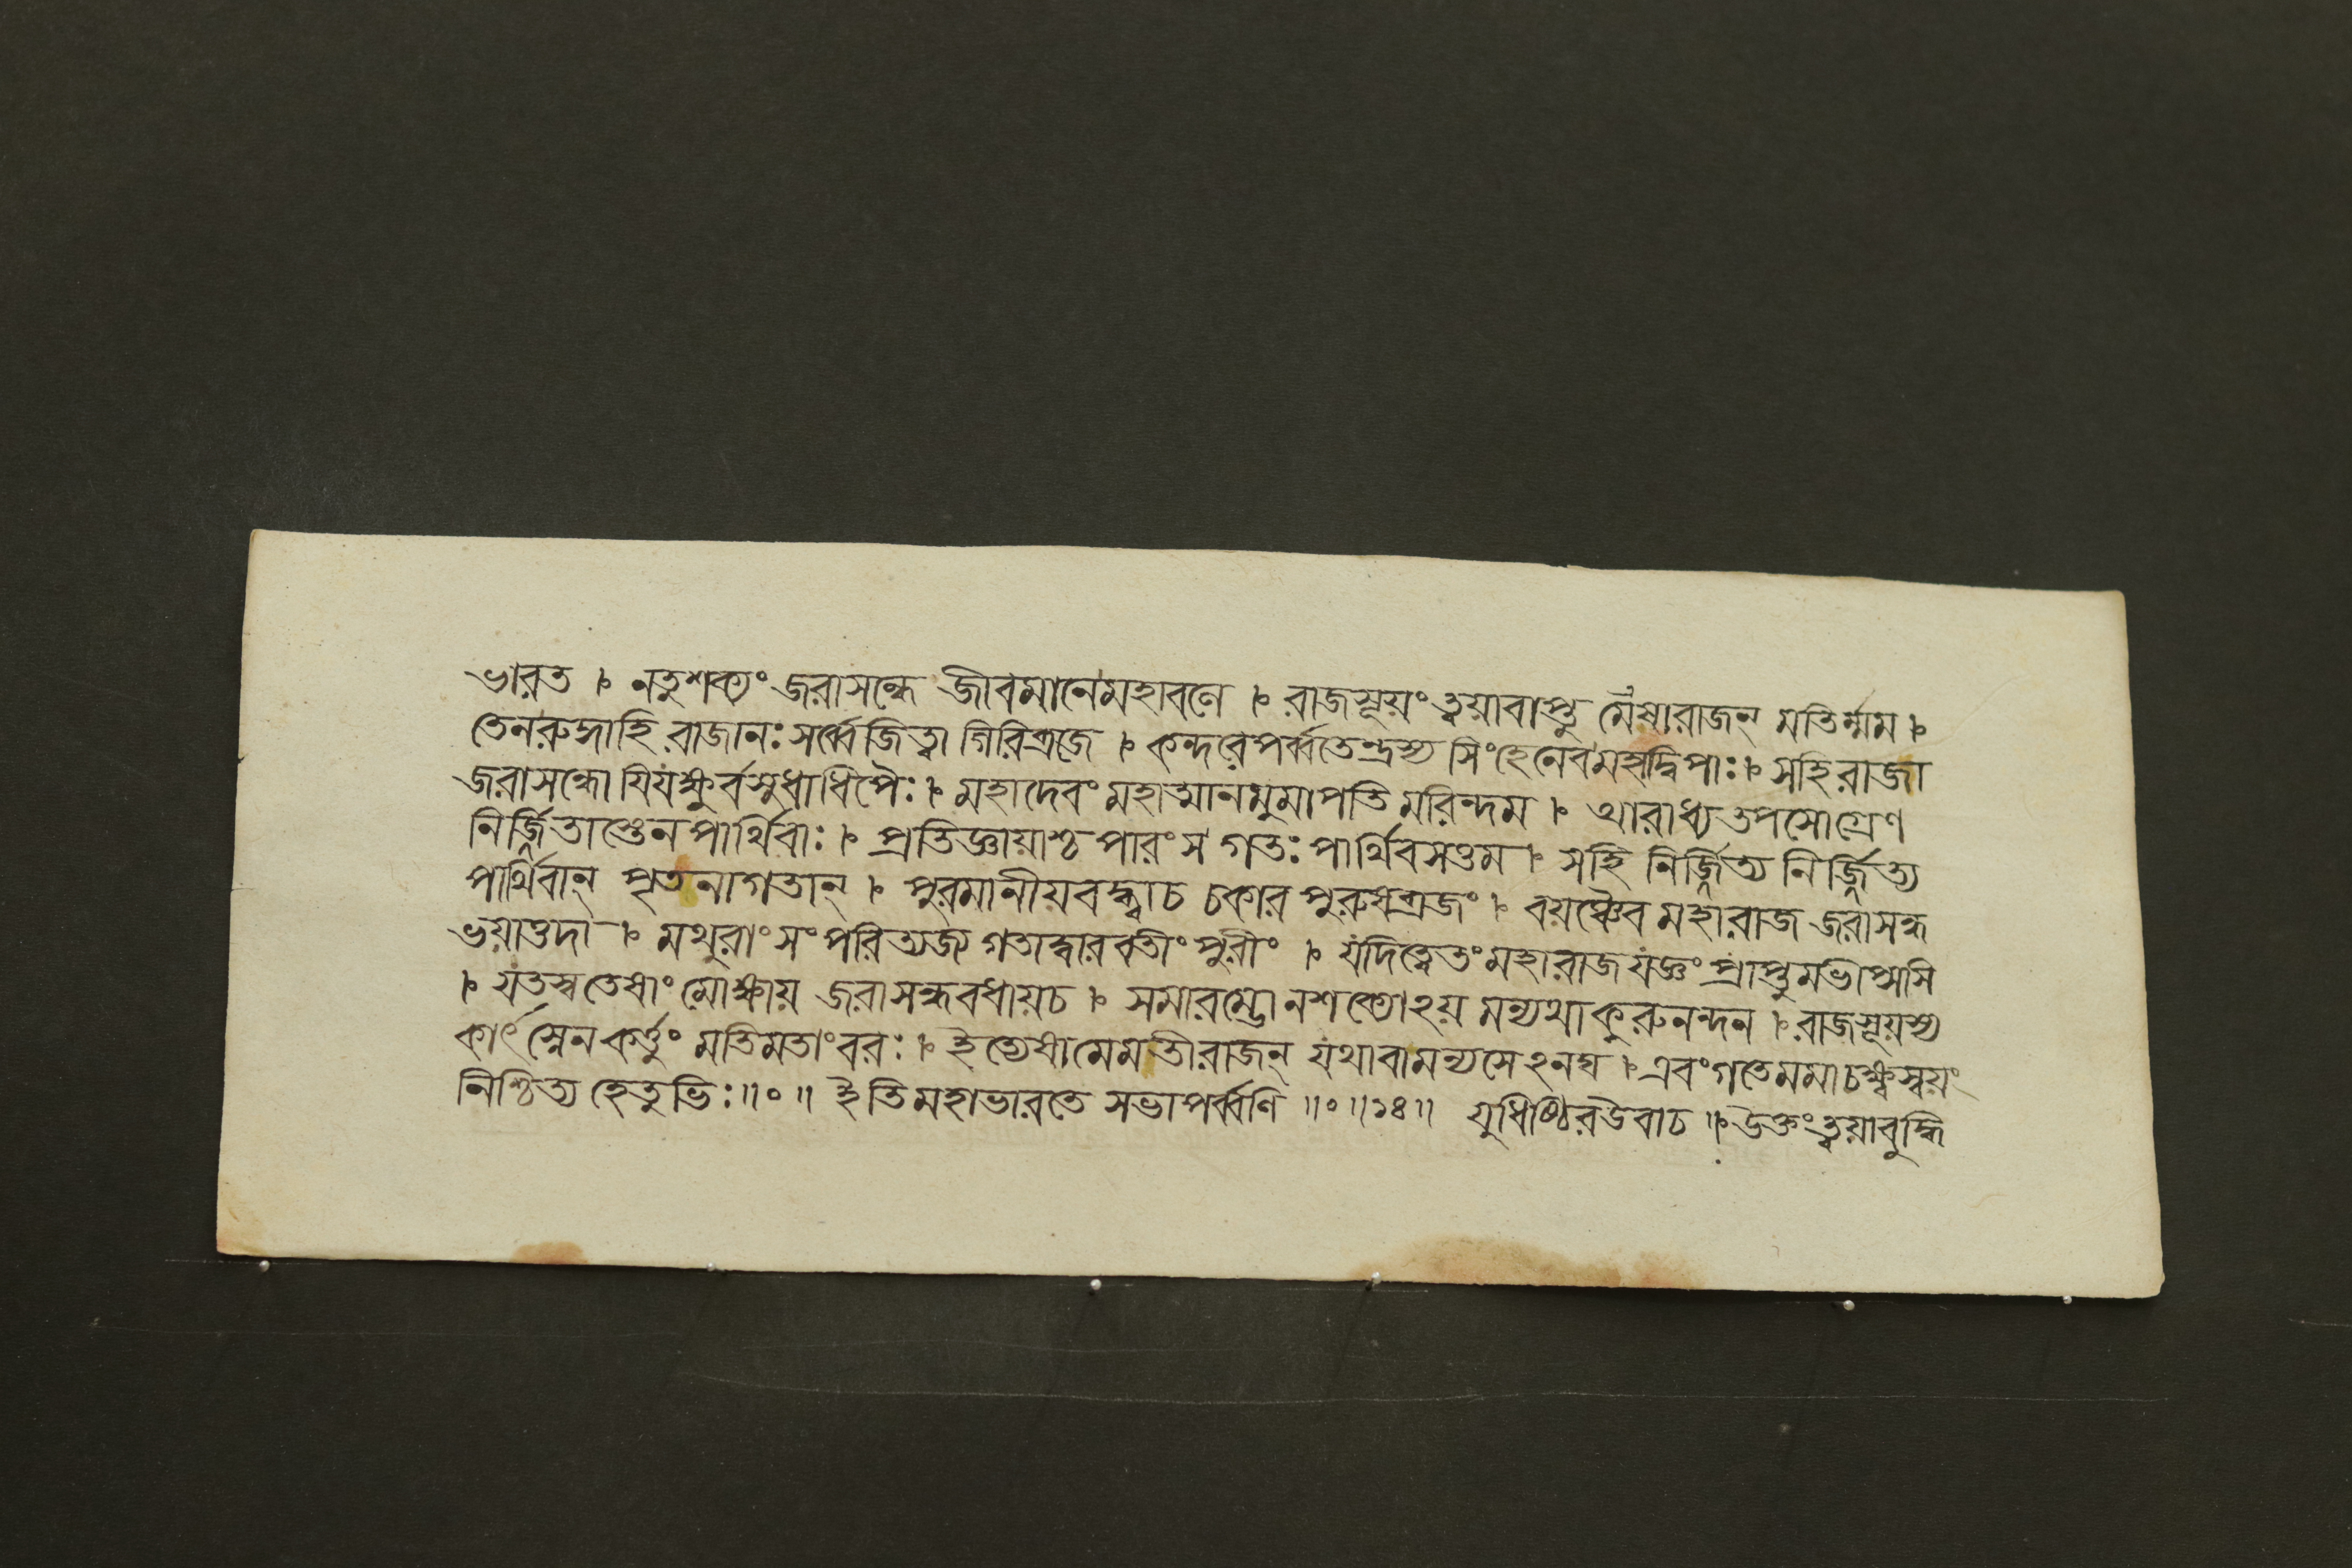 ভারত । নতুশক্যং জরাসন্ধে জীবমানেমহাবলে । রাজসূয়ংত্বয়াবাপ্তু মেষারাজন্ মতির্ম্মম ।
তেনরুদ্ধাহি রাজানঃ সর্ব্বেজিত্বা গিরিব্রজে । কন্দরেপর্ব্বতেন্দ্রস্য সিংহেনেবমহাদ্বিপাঃ । সহিরাজা
জরাসন্ধো যিযক্ষুর্বসুধাধিপৈঃ । মহাদেবং মহাত্মানমুমাপতিমরিন্দম । আরাধ্যতপসোগ্রেণ
নির্জ্জিতাস্তেনপার্থিবাঃ । প্রতিজ্ঞায়াশ্চ পারংস গতঃ পার্থিবসত্তম । সহি নির্জ্জিত্য নির্জ্জিত্য
পার্থিবান্ পৃতনাগতান্ । পুরমানীয়বদ্ধ্বাচ চকার পুরুষব্রজং । বয়ঞ্চৈব মহারাজ জরাসন্ধ
ভয়াত্তদা । মথুরাং সংপরিত্যজ্য গতাদ্বারবতীং পুরীং । যদিত্বেতং মহারাজ যজ্ঞং প্রাপ্তুমভীপ্সসি
। যতস্বতেষাং মোক্ষায় জরাসন্ধবধায়চ । সমারম্ভোনশক্যোঽয় মন্যথাকুরুনন্দন । রাজসূয়স্য
কার্ৎস্নেনকর্ত্তুং মতিমতাংবরঃ । ইত্যেষামেমতীরাজন্ যথাবামন্যসেঽনঘ । এবংগতেমমাচক্ষ্বস্বয়ং
নিশ্চিত্য হেতুভিঃ॥০॥ ইতিমহাভারতে সভাপর্ব্বণি ॥০॥১৪॥ যুধিষ্ঠিরউবাচ ॥ উক্তংত্বয়াবুদ্ধি